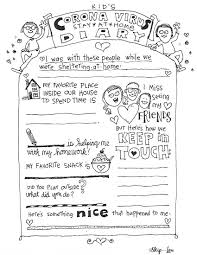 KID'S
CORONA VIRUS
STAY AT HOME
DIARY
I was with these people while we
were sheltering-at-home:
MY FAVORITE PLACE
INSIDE OUR HOUSE
TO SPEND TIME IS
I MISS
seeing
my
FRIENDS
But Here's how we
KEEP IN
TOUCH
is helping me
with my homework!
MY FAVORITE SNACK
DID YOU PLAY OUTSIDE?
What did you do?
Here's something nice that happened to me: